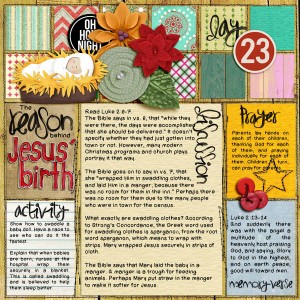 OH HOLY NIGHT
Day
23
The
reason
behind
Jesus'
birth
Read Luke 2:6-7.
The Bible says in vs. 6, that "while they
were there, the days were accomplished
that she should be delivered." It doesn't
specify whether they had just gotten into
town or not. However, many modern
Christmas programs and church plays
portray it that way.
The Bible goes on to say in vs. 7, that
she "wrapped him in swaddling clothes,
and laid Him in a manger; because there
was no room for them in the inn." Perhaps there
was no room for them due to the many people
who were in town for the census.
What exactly are swaddling clothes? According
to Strong's Concordance, the Greek word used
for swaddling clothes is sparganoo, from the root
word sparganon, which means to wrap with
strips. Mary wrapped Jesus securely in strips of
cloth.
The Bible says that Mary laid the baby in
a manger. A manger is a trough for feeding
animals. Perhaps Mary put straw in the manger
to make it softer for Jesus.
Discussion
Prayer
Parents lay hands on
each of their children,
thanking God for each
of them, and praying
individually for each of
them. Children, in turn,
can pray for parents.
activity
Show how to swaddle a
baby doll. Have a race to
see who can do it the
fastest.
Explain that when babies
are born, nurses at the
hospital wrap them
securely in a blanket.
This is called swaddling
and is believed to help
them feel safe.
Luke 2:13-14
And suddenly there
was with the angel a
multitude of the
heavenly host praising
God, and saying, Glory
to God in the highest,
and on earth peace,
good will toward men.
memory verse